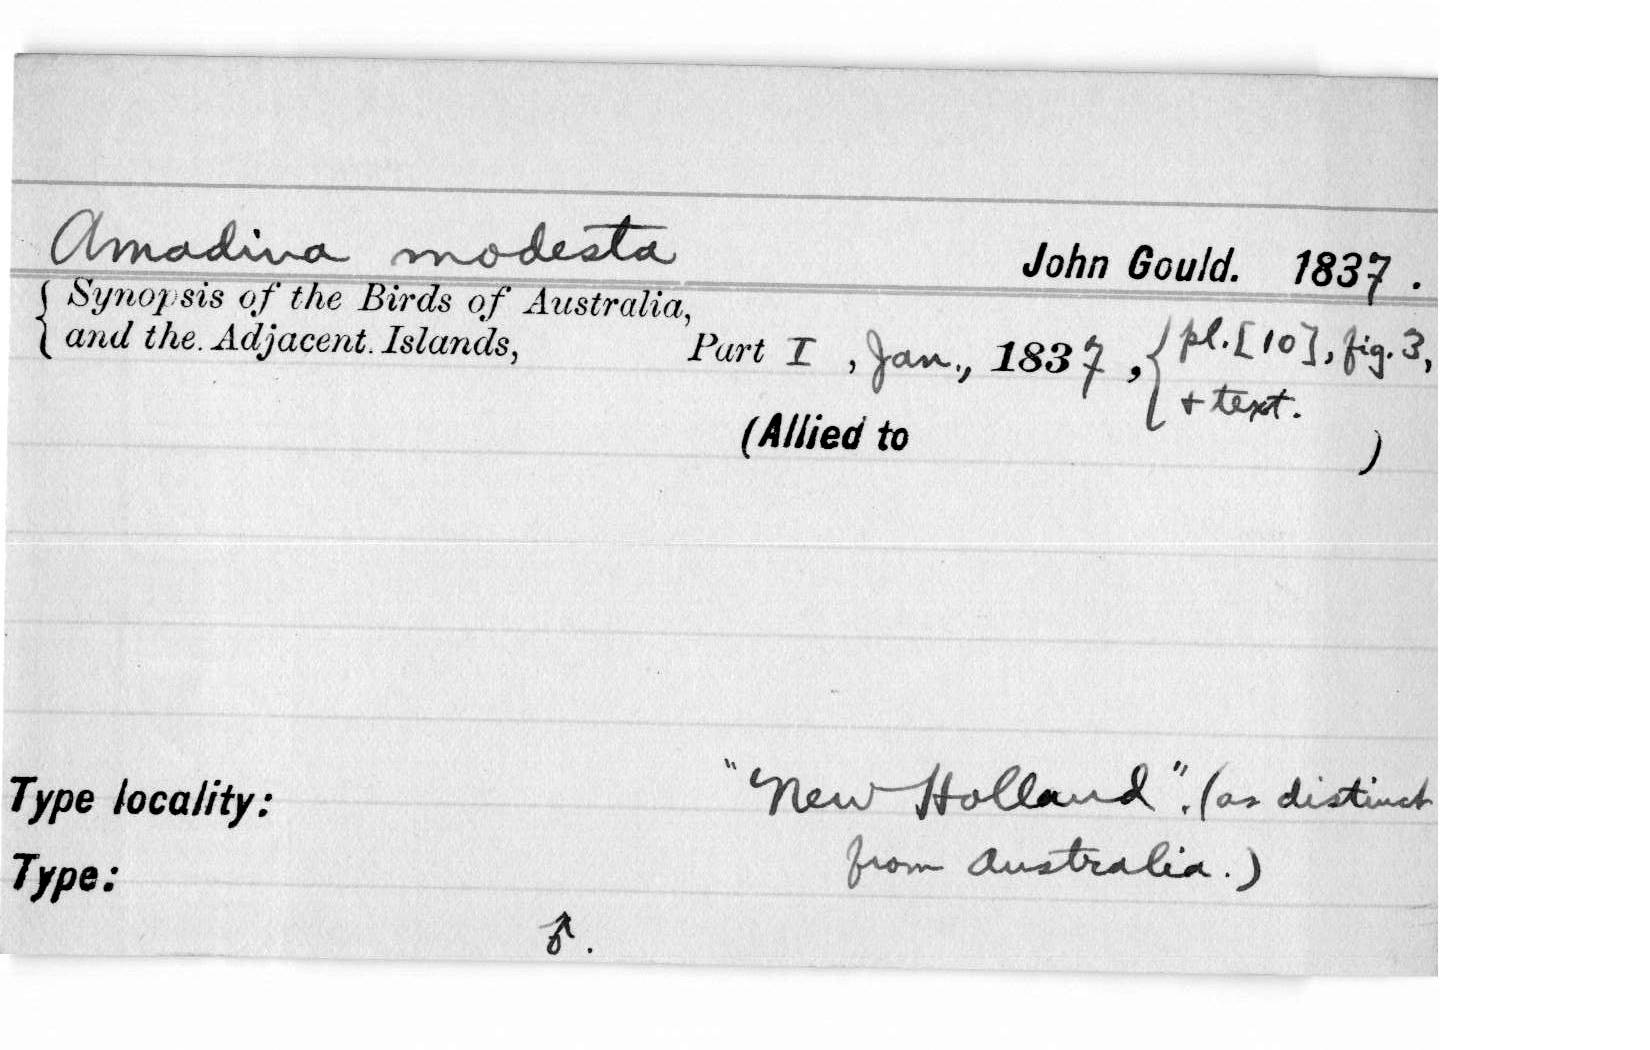 Amadina modesta John Gould. 1837.
{ Synopsis of the Birds of Australia,
and the Adjacent Islands, Part I, Jan., 1837, { pl. [10], fig. 3,
+ text.
(Allied to )
Type locality: "New Holland". (as distinct
from Australia.)
Type:
♂.